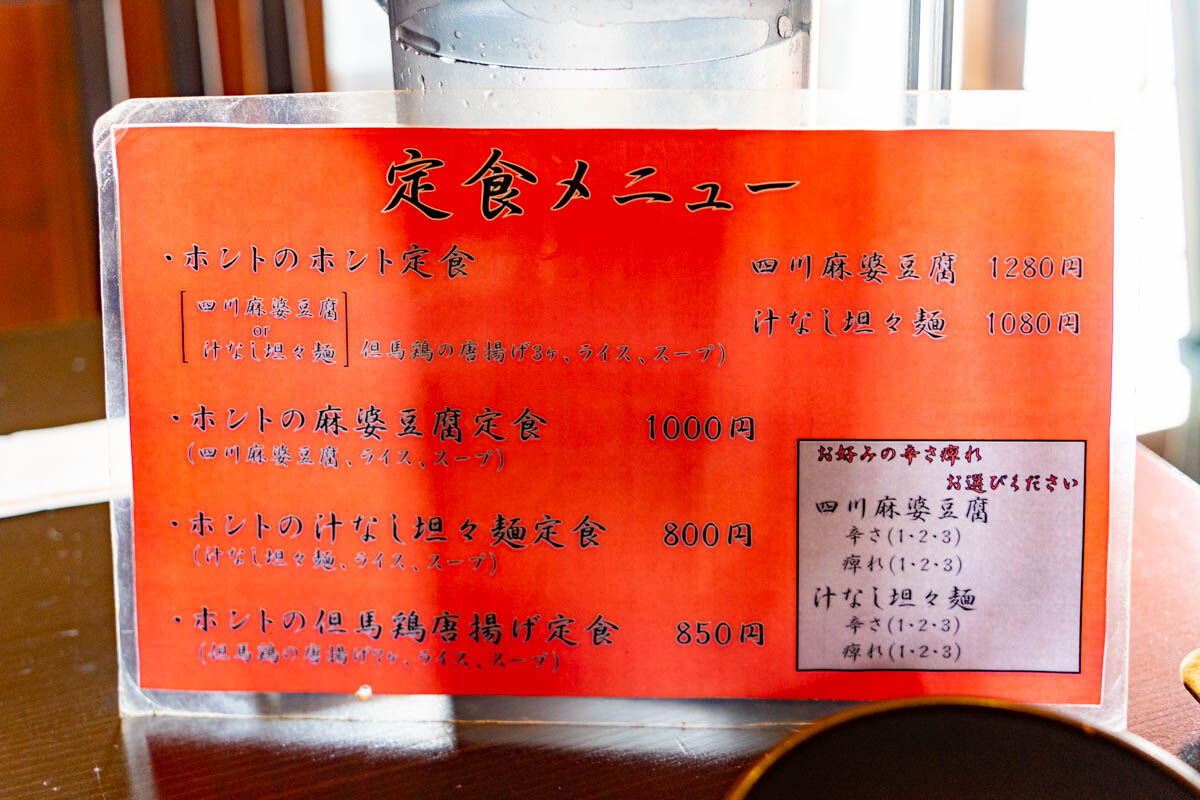 定食メニュー
・ホントのホント定食
四川麻婆豆腐 1280円
汁なし坦々麺 1080円
四川麻婆豆腐
or
汁なし坦々麺 但馬鶏の唐揚げ3ヶ、ライス、スープ)
・ホントの麻婆豆腐定食 1000円
(四川麻婆豆腐、ライス、スープ)
・ホントの汁なし坦々麺定食 800円
(汁なし坦々麺、ライス、スープ)
・ホントの但馬鶏唐揚げ定食 850円
(但馬鶏の唐揚げ7ヶ、ライス、スープ)
お好みの辛さ痺れ
お選びください
四川麻婆豆腐
辛さ(1・2・3)
痺れ(1・2・3)
汁なし坦々麺
辛さ(1・2・3)
痺れ(1・2・3)